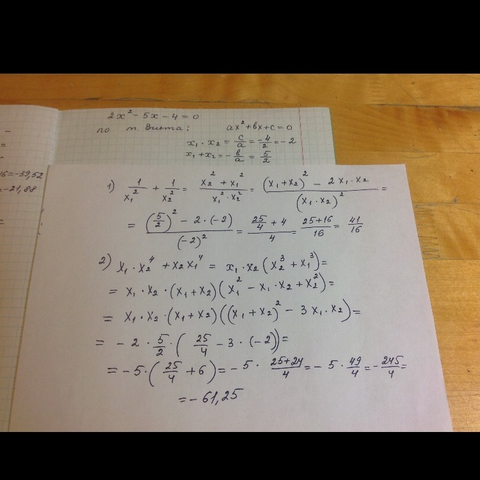 2x² - 5x - 4 = 0
по т. Виета: ax² + bx + c = 0
x₁ · x₂ = c/a = -4/2 = -2
x₁ + x₂ = -b/a = 5/2
6=-39,52
=-21,88
1) 1/x₁² + 1/x₂² = (x₂² + x₁²)/(x₁² · x₂²) = ((x₁+x₂)² - 2x₁·x₂)/(x₁·x₂)² =
= ((5/2)² - 2·(-2))/(-2)² = (25/4 + 4)/4 = (25+16)/16 = 41/16
2) x₁ · x₂⁴ + x₂x₁⁴ = x₁·x₂(x₂³ + x₁³) =
= x₁ · x₂ · (x₁+x₂)(x₁² - x₁·x₂ + x₂²) =
= x₁·x₂·(x₁+x₂)((x₁+x₂)² - 3x₁·x₂) =
= -2 · 5/2 · (25/4 - 3·(-2)) =
= -5·(25/4 + 6) = -5 · (25+24)/4 = -5 · 49/4 = -245/4 =
= -61,25